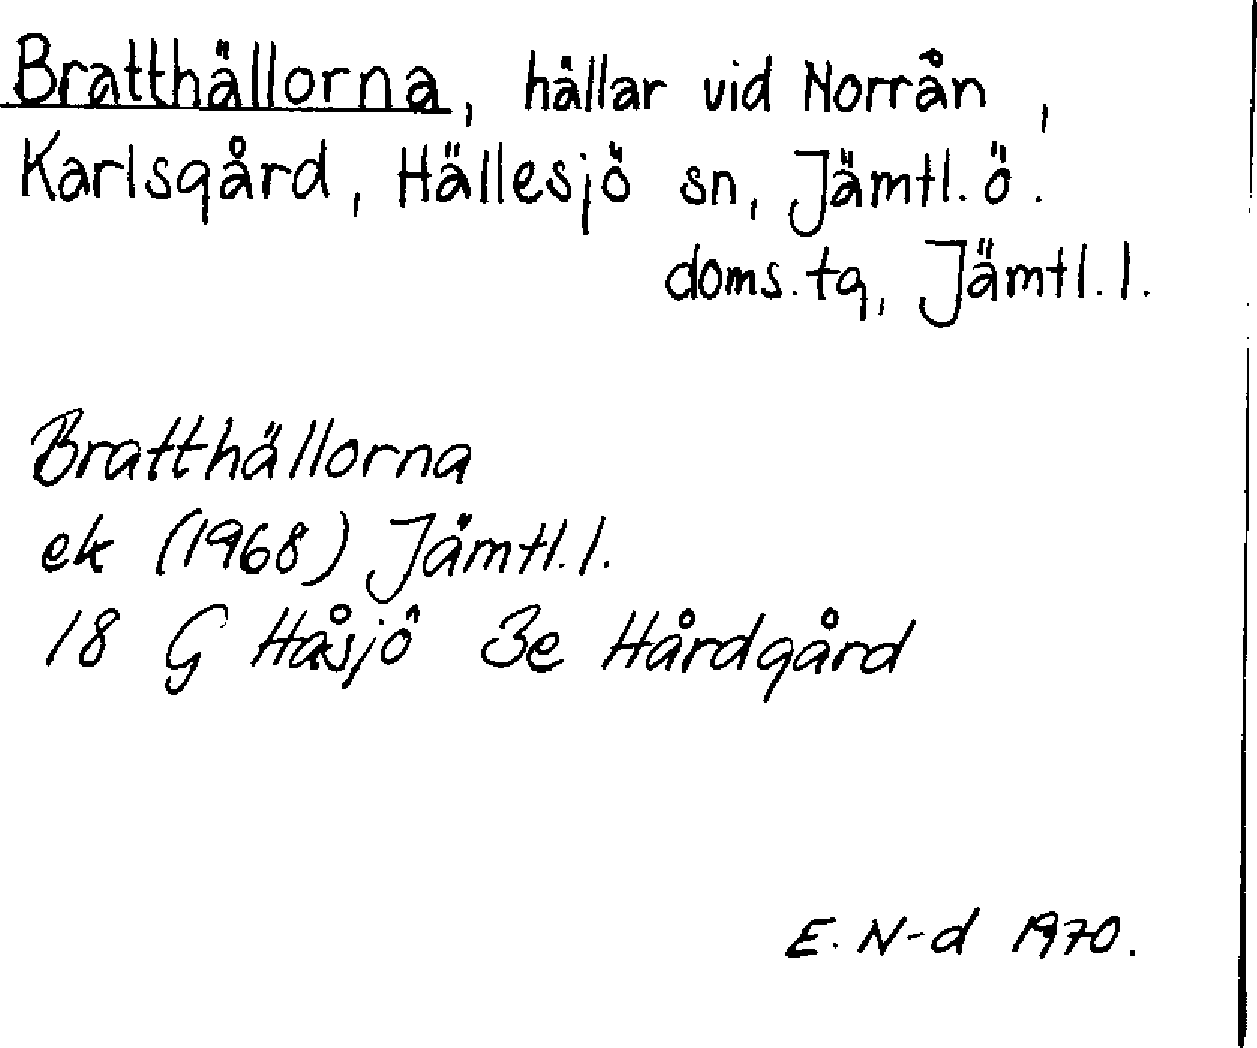 Bratthällorna, hällar vid Norrån,
Karlsgård, Hällesjö sn, Jämtl. ö.
doms. tg, Jämtl. l.
Bratthällorna
ek (1968) Jämtl. l.
18 G Håsjö 3e Hårdgård
E. N-d 1970.